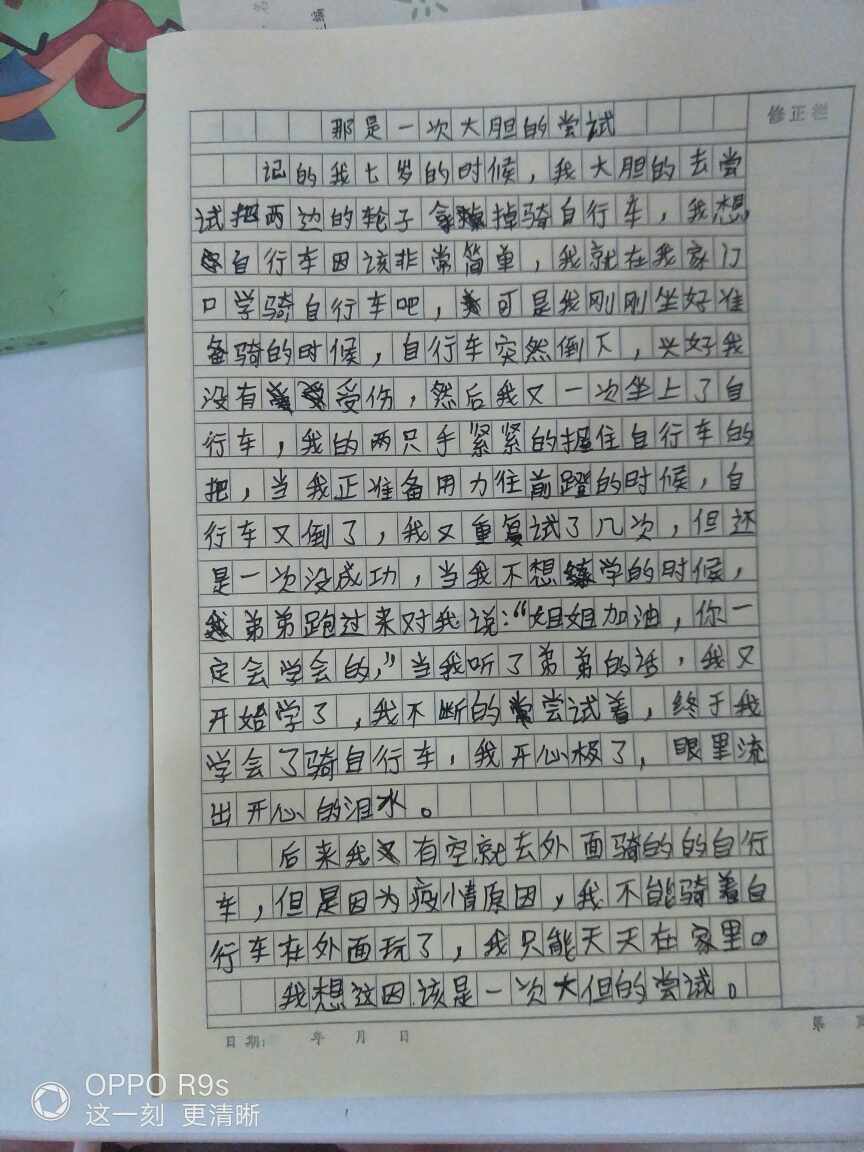 修正栏
那是一次大胆的尝试
记的我七岁的时候，我大胆的去尝
试把两边的轮子拿掉骑自行车，我想
自行车因该非常简单，我就在我家门
口学骑自行车吧，可是我刚刚坐好准
备骑的时候，自行车突然倒下，兴好我
没有受伤，然后我又一次坐上了自
行车，我的两只手紧紧的握住自行车的
把，当我正准备用力往前蹬的时候，自
行车又倒了，我又重复试了几次，但还
是一次没成功，当我不想学的时候，
弟弟跑过来对我说：“姐姐加油，你一
定会学会的，”当我听了弟弟的话，我又
开始学了，我不断的尝试着，终于我
学会了骑自行车，我开心极了，眼里流
出开心的泪水。
后来我有空就去外面骑的的自行
车，但是因为疫情原因，我不能骑着自
行车在外面玩了，我只能天天在家里。
我想这因该是一次大但的尝试。
日期: 年 月 日 第
OPPO R9s
这一刻 更清晰